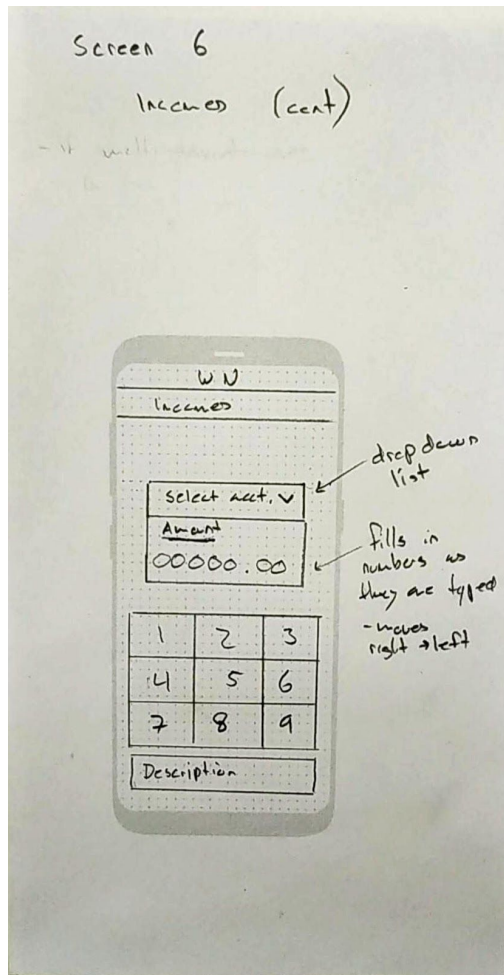 Screen 6
Incomes (cont)
- if
WN
Incomes
Select acct.
Amount
00000.00
1 2 3
4 5 6
7 8 9
Description
drop down
list
fills in
numbers as
they are typed
- moves
right → left